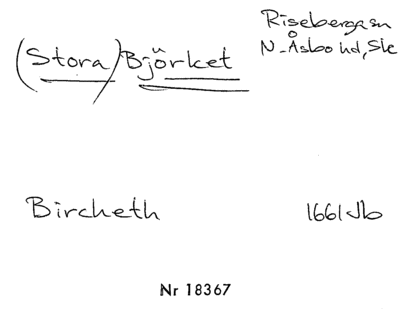 Riseberga sn
(Stora) Björket N. Åsbo hd, Ske
Bircheth 1661 Jb
Nr 18367